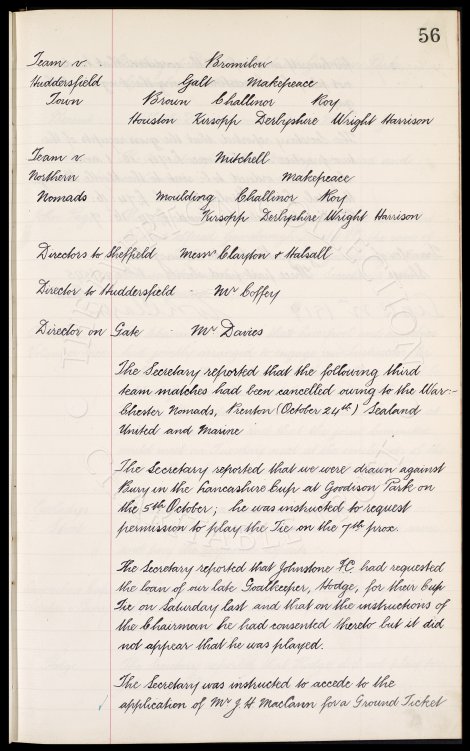 56
Team v. Bromilow
Huddersfield Galt Makepeace
Town Brown Challinor Roy
Houston Kirsopp Derbyshire Wright Harrison
Team v. Mitchell
Northern Makepeace
Nomads Moulding Challinor Roy
Kirsopp Derbyshire Wright Harrison
Directors to Sheffield Messrs Clayton & Halsall
Director to Huddersfield - Mr Coffey
Director on Gate - Mr Davies
The Secretary reported that the following third
team matches had been cancelled owing to the War:-
Chester Nomads, Prenton (October 24th) Sealand
United and Marine
The Secretary reported that we were drawn against
Bury in the Lancashire Cup at Goodison Park on
the 5th October; he was instructed to request
permission to play the Tie on the 7th prox.
The Secretary reported that Johnstone F.C. had requested
the loan of our late Goalkeeper, Hodge, for their Cup
Tie on Saturday last and that on the instructions of
the Chairman he had consented thereto but it did
not appear that he was played.
The Secretary was instructed to accede to the
application of Mr J. H. MacCann for a Ground Ticket